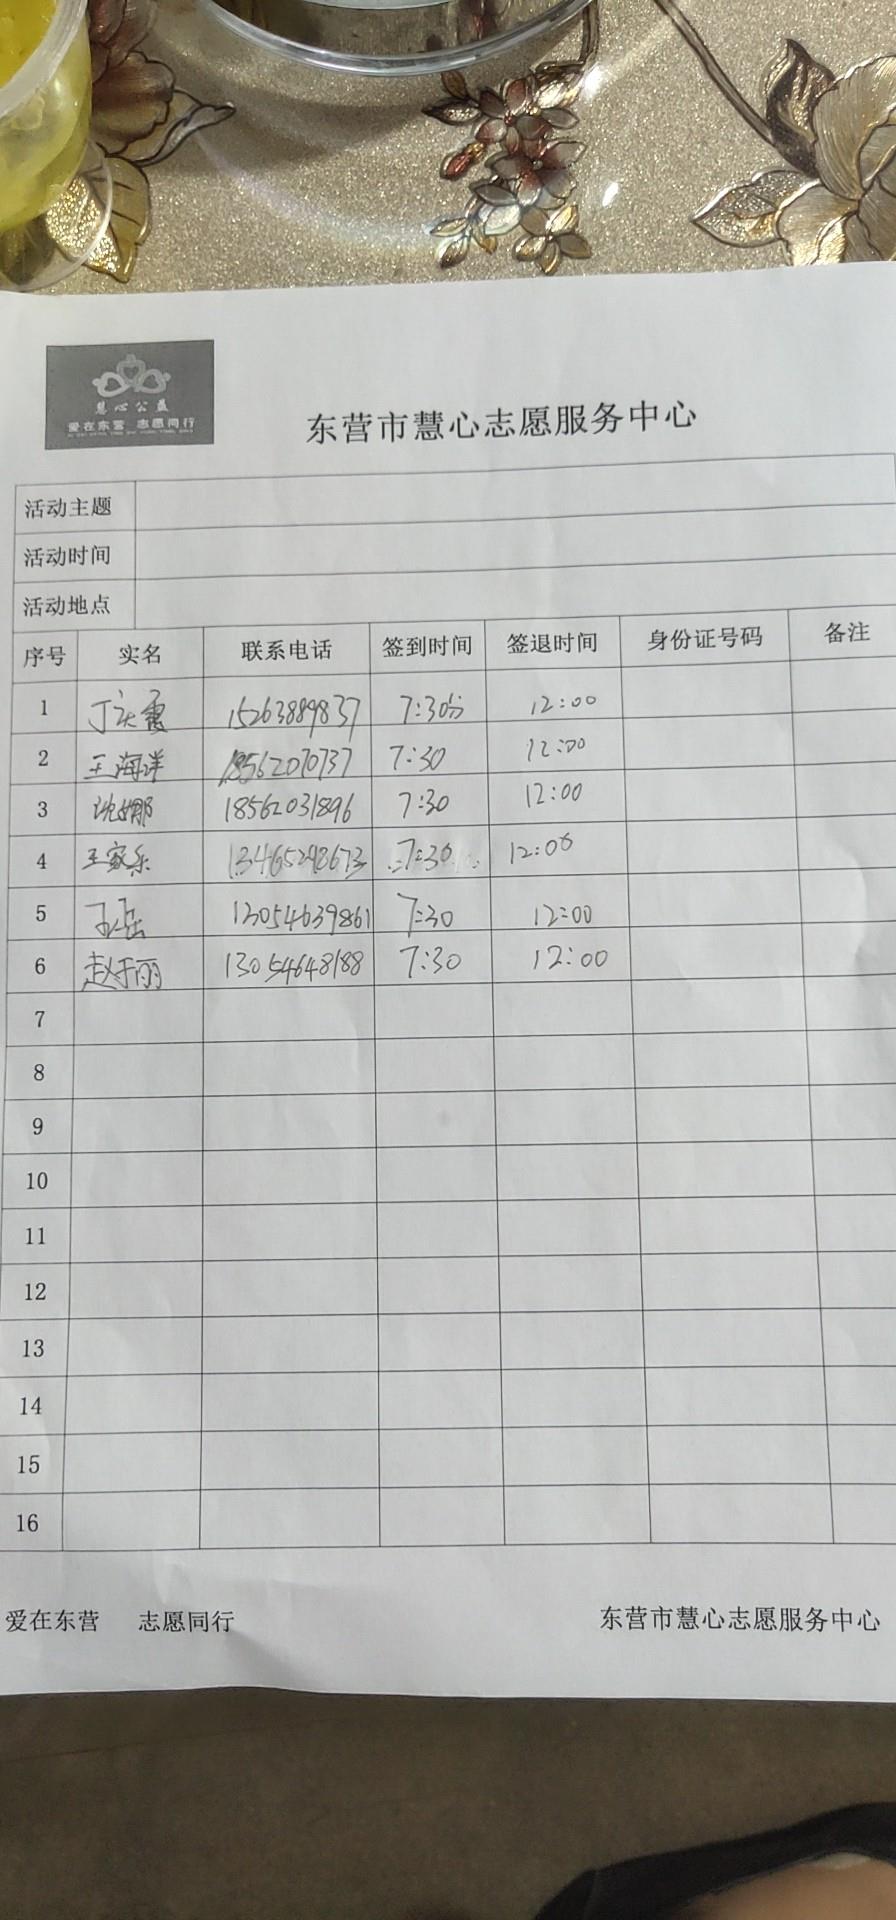 慧心公益
爱在东营 志愿同行
东营市慧心志愿服务中心
活动主题
活动时间
活动地点
序号 实名 联系电话 签到时间 签退时间 身份证号码 备注
1 丁庆霞 15263889837 7:30分 12:00
2 王海洋 18562070737 7:30 12:00
3 沈娜 18562031896 7:30 12:00
4 王家乐 13465298673 7:30 12:00
5 13054639861 7:30 12:00
6 赵于丽 13054648188 7:30 12:00
7
8
9
10
11
12
13
14
15
16
爱在东营 志愿同行 东营市慧心志愿服务中心